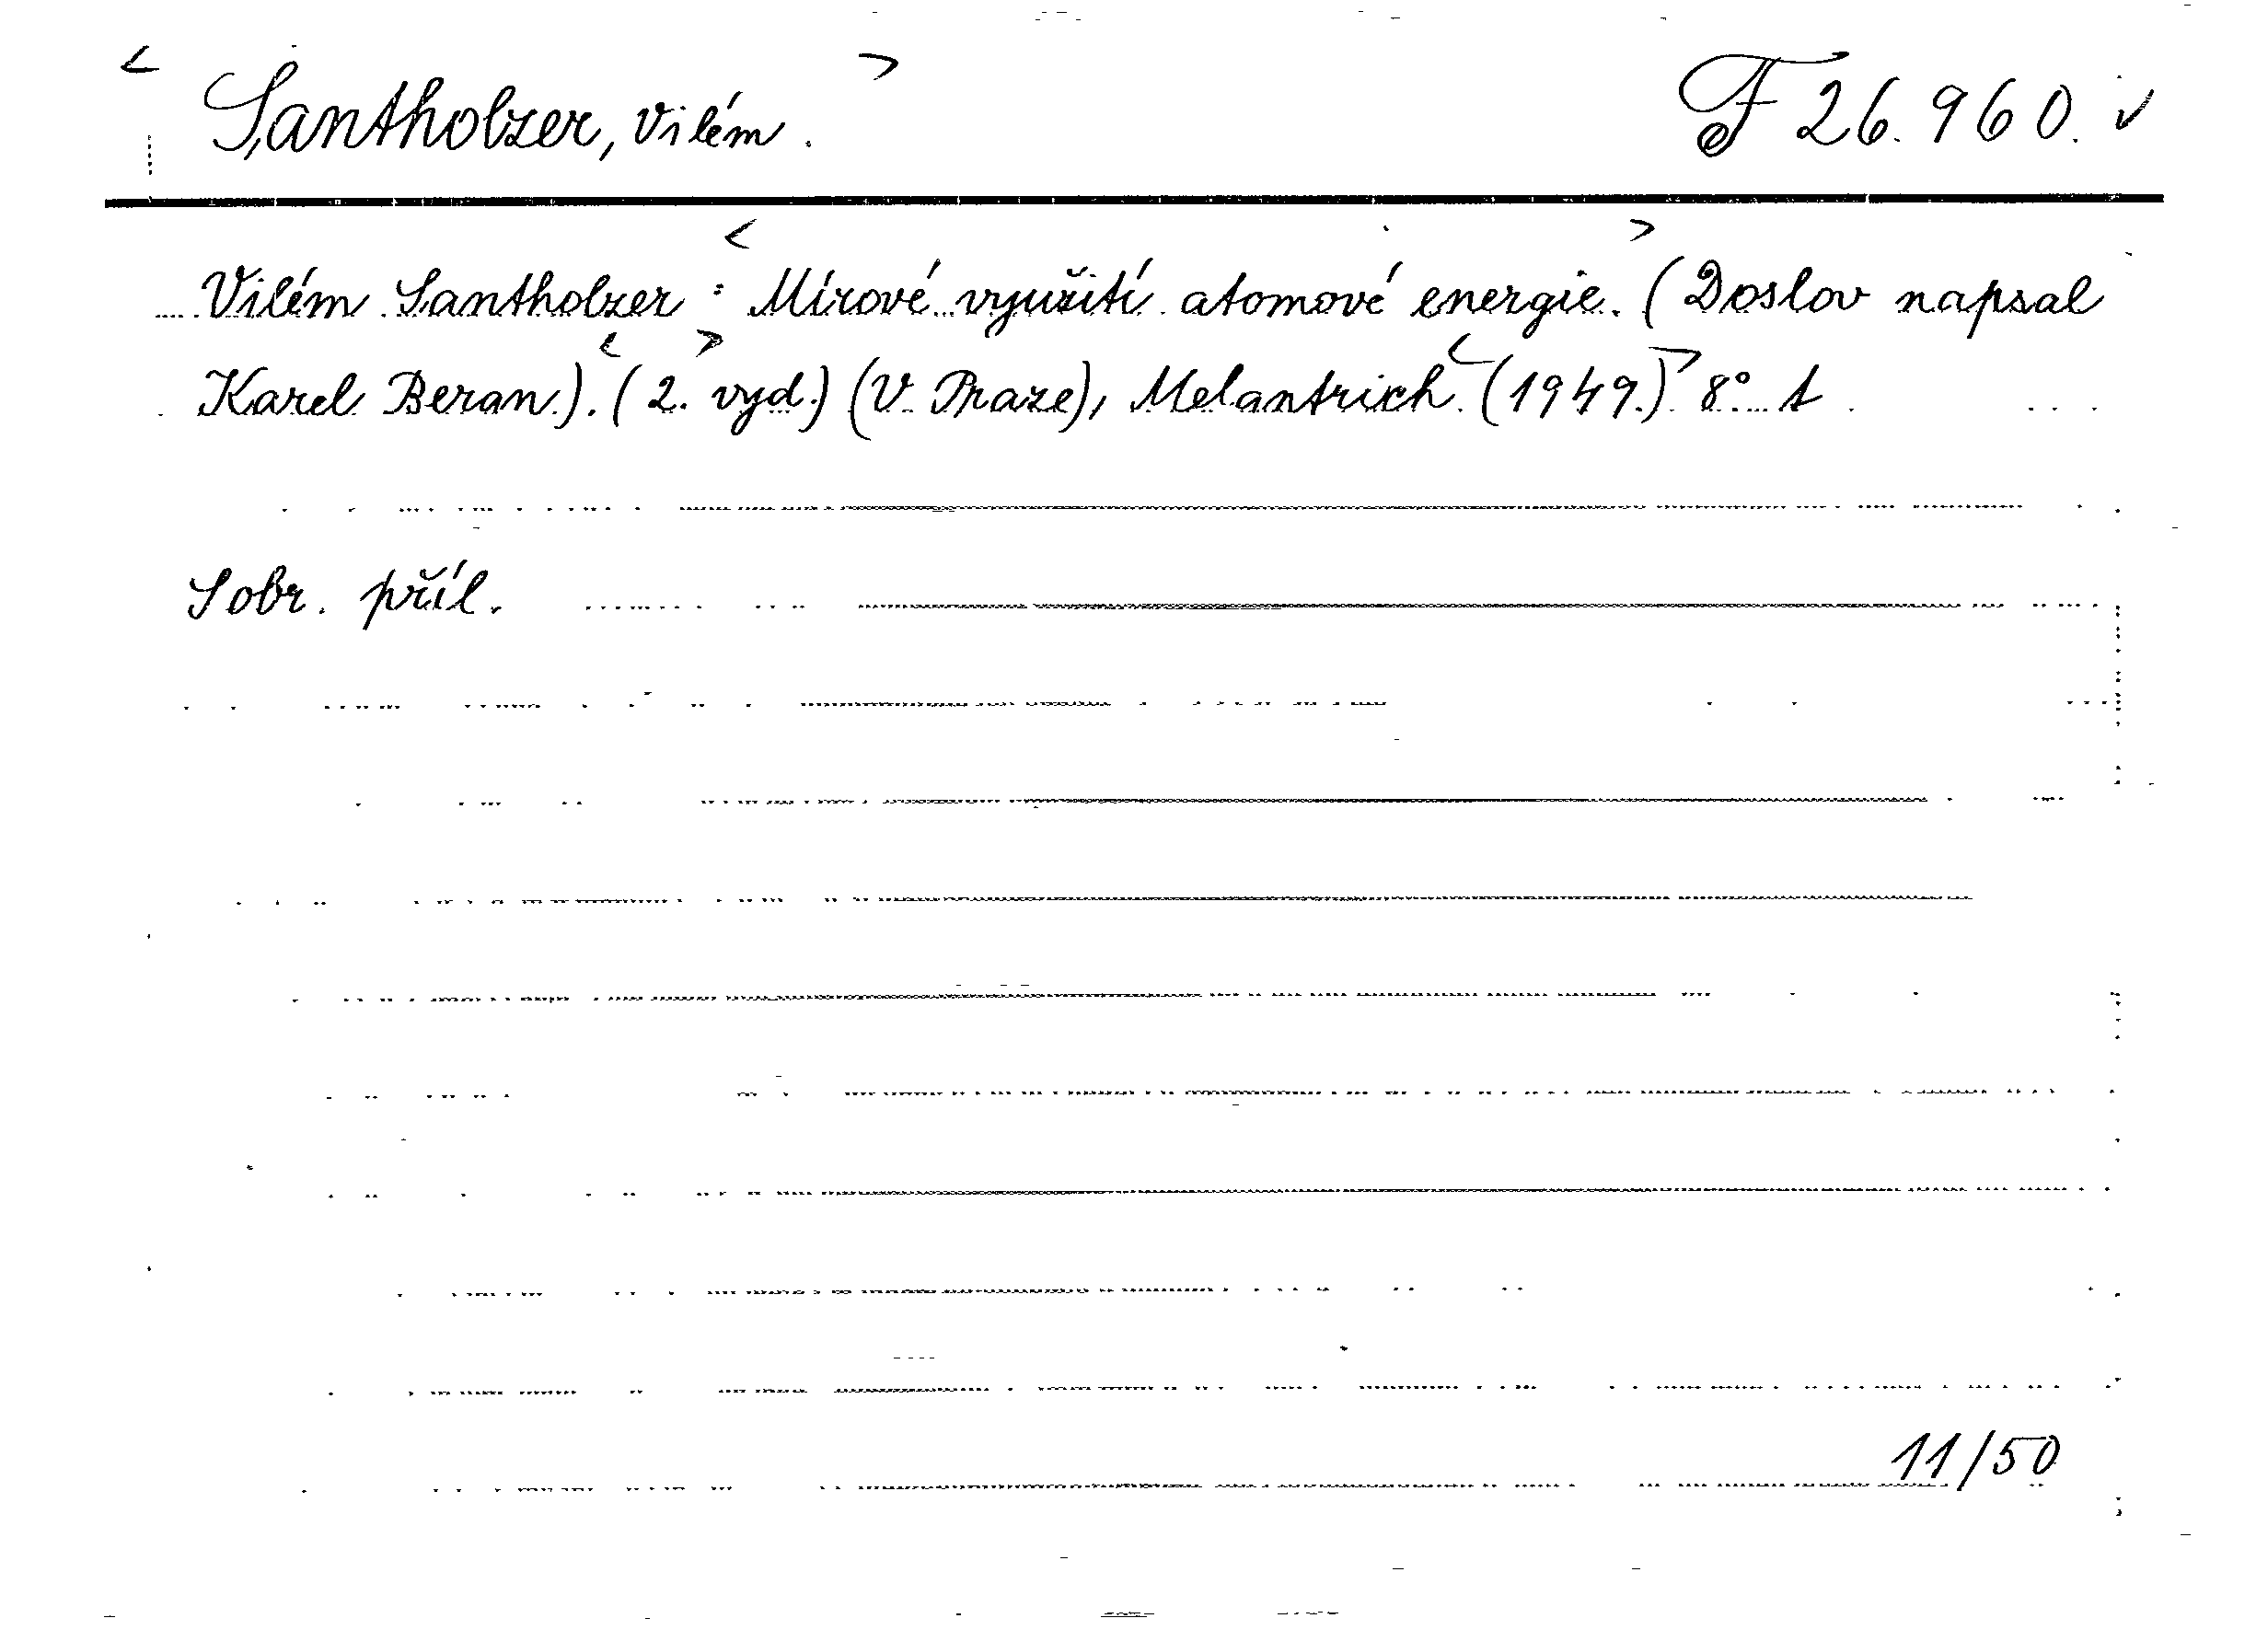 < Santholzer, Vilém. > F 26.960. ✓
Vilém Santholzer: <Mírové využití atomové energie.> (Doslov napsal
Karel Beran). <(2. vyd.)> (V Praze), Melantrich <(1949.)> 8° 1
S obr. příl.
11/50